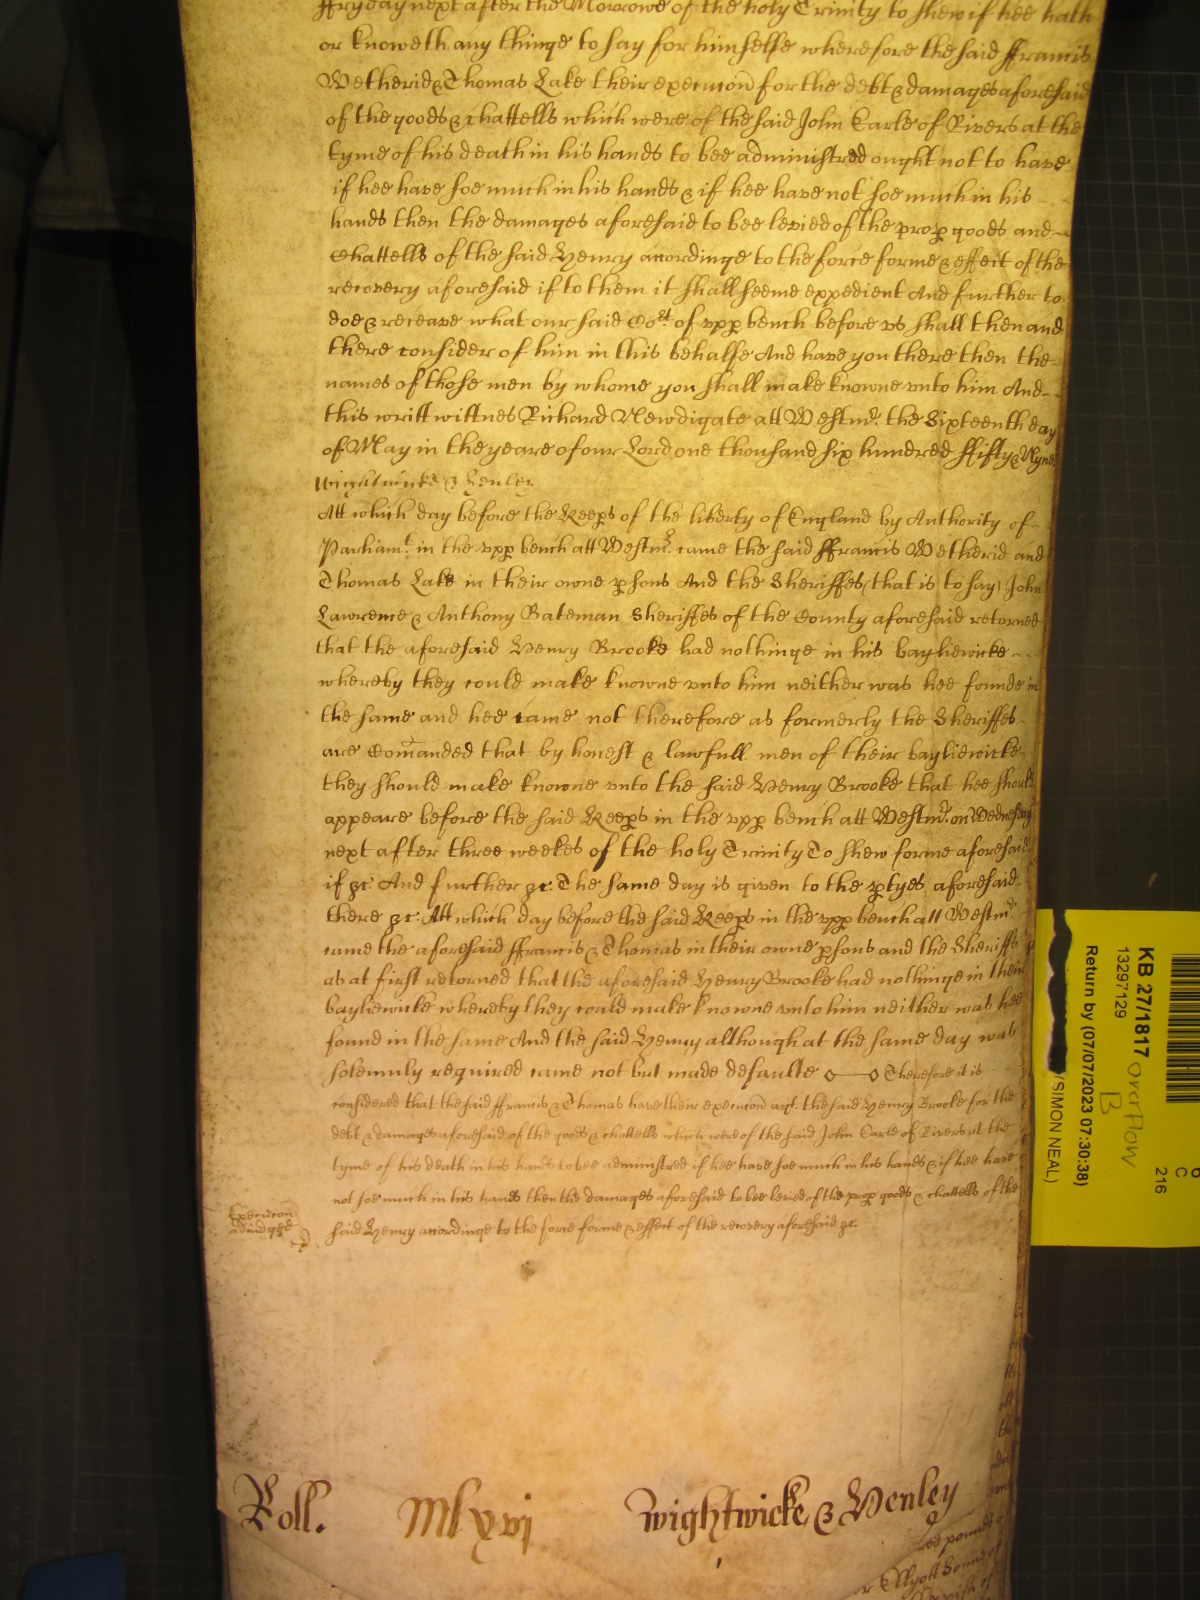 ffryday next after the Morrowe of the holy Trinity to shew if hee hath
or knoweth any thinge to say for himselfe wherefore the said ffrancis
Wetherid & Thomas Lake their execucon for the debt & damages aforesaid
of the goods & chattells which were of the said John Earle of Rivers at the
tyme of his death in his hands to bee administred ought not to have
if hee have soe much in his hands & if hee have not soe much in his
hands then the damages aforesaid to bee levied of the prop goods and
Chattells of the said Henry accordinge to the force forme & effect of the
recovery aforesaid if to them it shall seeme expedient And further to
doe & receave what our said Cort of vpp bench before vs shall then and
there consider of him in this behalfe And have you there then the
names of those men by whome you shall make knowne vnto him And
this writt wittnes Richard Newdigate att Westmr. the Sixteenth day
of May in the yeare of our Lord one thousand six hundred ffifty & Nyne
Wightwicke & Henley
Att which day before the Keeps of the liberty of England by Authority of
Parliamt. in the vpp bench att Westmr. came the said ffrancis Wetherid and
Thomas Lake in their owne psons And the Sheriffes (that is to say) John
Lawrence & Anthony Bateman Sheriffes of the County aforesaid retorned
that the aforesaid Henry Brooke had nothinge in his bayliewicke
whereby they could make knowne vnto him neither was hee founde in
the same and hee came not therefore as formerly the Sheriffes
are Comanded that by honest & lawfull men of their bayliewicke
they should make knowne vnto the said Henry Brooke that hee should
appeare before the said Keeps in the vpp bench att Westmr. on Wednesday
next after three weekes of the holy Trinity To shew forme aforesaid
if &c And further &c The same day is given to the ptyes aforesaid
there &c. Att which day before the said Keeps in the vpp bench att Westmr.
came the aforesaid ffrancis & Thomas in their owne psons and the Sheriffs
as at first retorned that the aforesaid Henry Brooke had nothinge in their
bayliewicke whereby they could make knowne vnto him neither was hee
found in the same And the said Henry although at the same day was
solemnly required came not but made defaulte Therefore it is
considered that the said ffrancis & Thomas have their execucon agt. the said Henry Brooke for the
debt & damages aforesaid of the goods & chattells which were of the said John Earle of Rivers at the
tyme of his death in his hands to bee administred if hee have soe much in his hands & if hee have
not soe much in his hands then the damages aforesaid to bee levied of the prop goods & chattells of the
Execucon
adiudged
said Henry accordinge to the force forme & effect of the recovery aforesaid &c.
Roll. Mlxvi Wightwicke & Henley
KB 27/1817 overflow
B
13297129
Return by (07/07/2023 07:30:38)
(SIMON NEAL)
216
C
6